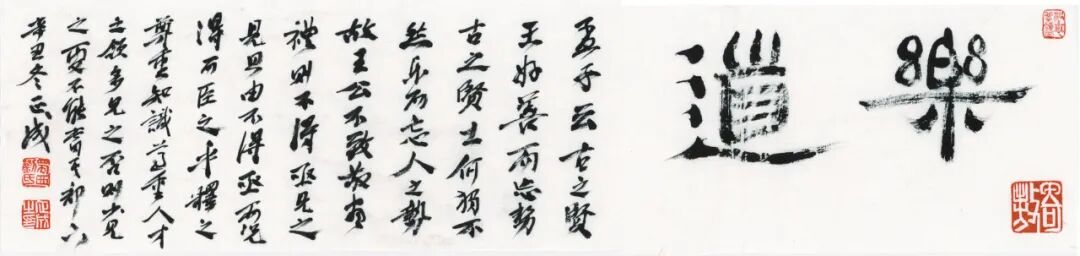 樂道
孟子云古之賢
王好善而忘勢
古之賢士何獨不
然乐而忘人之勢
故王公不致敬盡
禮則不得亟見之
見且由不得亟而況
得而臣之乎釋之
尊重知識尊重人才
之多見之否則少見
之更不能
辛丑冬正成